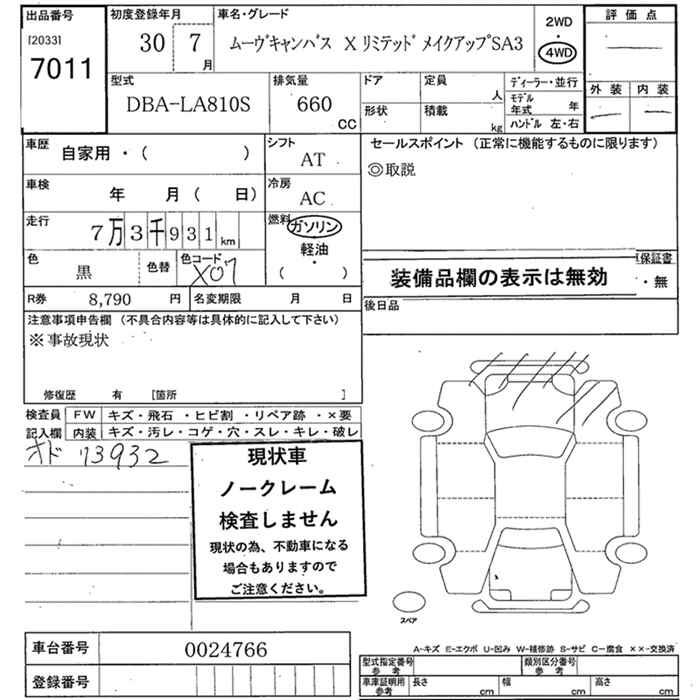 出品番号
[2033]
7011
初度登録年月
30 7
月
車名・グレード
ムーヴキャンバス X リミテッド メイクアップSA3
2WD
・
4WD
評 価 点
外 装 内 装
型式
DBA-LA810S
排気量
660
CC
ドア
定員
人
形状
積載
kg
ディーラー・並行
モデル
年式 年
ハンドル 左・右
車歴
自家用 ・ ( )
シフト
AT
車検
年 月 ( 日)
冷房
AC
走行
7 万 3 千 9 3 1 km
燃料
ガソリン
軽油・
( )
色
黒
色替
色コード
X07
R券 8,790 円
名変期限 月 日
セールスポイント (正常に機能するものに限ります)
◎取説
装備品欄の表示は無効
保証書
・無
後日品
注意事項申告欄 (不具合内容等は具体的に記入して下さい)
※事故現状
修復歴 有 [箇所 ]
検査員
記入欄
FW キズ・飛石・ヒビ割・リペア跡・×要
内装 キズ・汚レ・コゲ・穴・スレ・キレ・破レ
オド 73932
現状車
ノークレーム
検査しません
現状の為、不動車になる
場合もありますので
ご注意ください。
スペア
A-キズ E-エクボ U-凹み W-補修跡 S-サビ C-腐食 ××-交換済
車台番号 0024766
登録番号
型式指定番号
参 考
類別区分番号
参 考
車庫証明用
参考
長さ cm 幅 cm 高さ cm